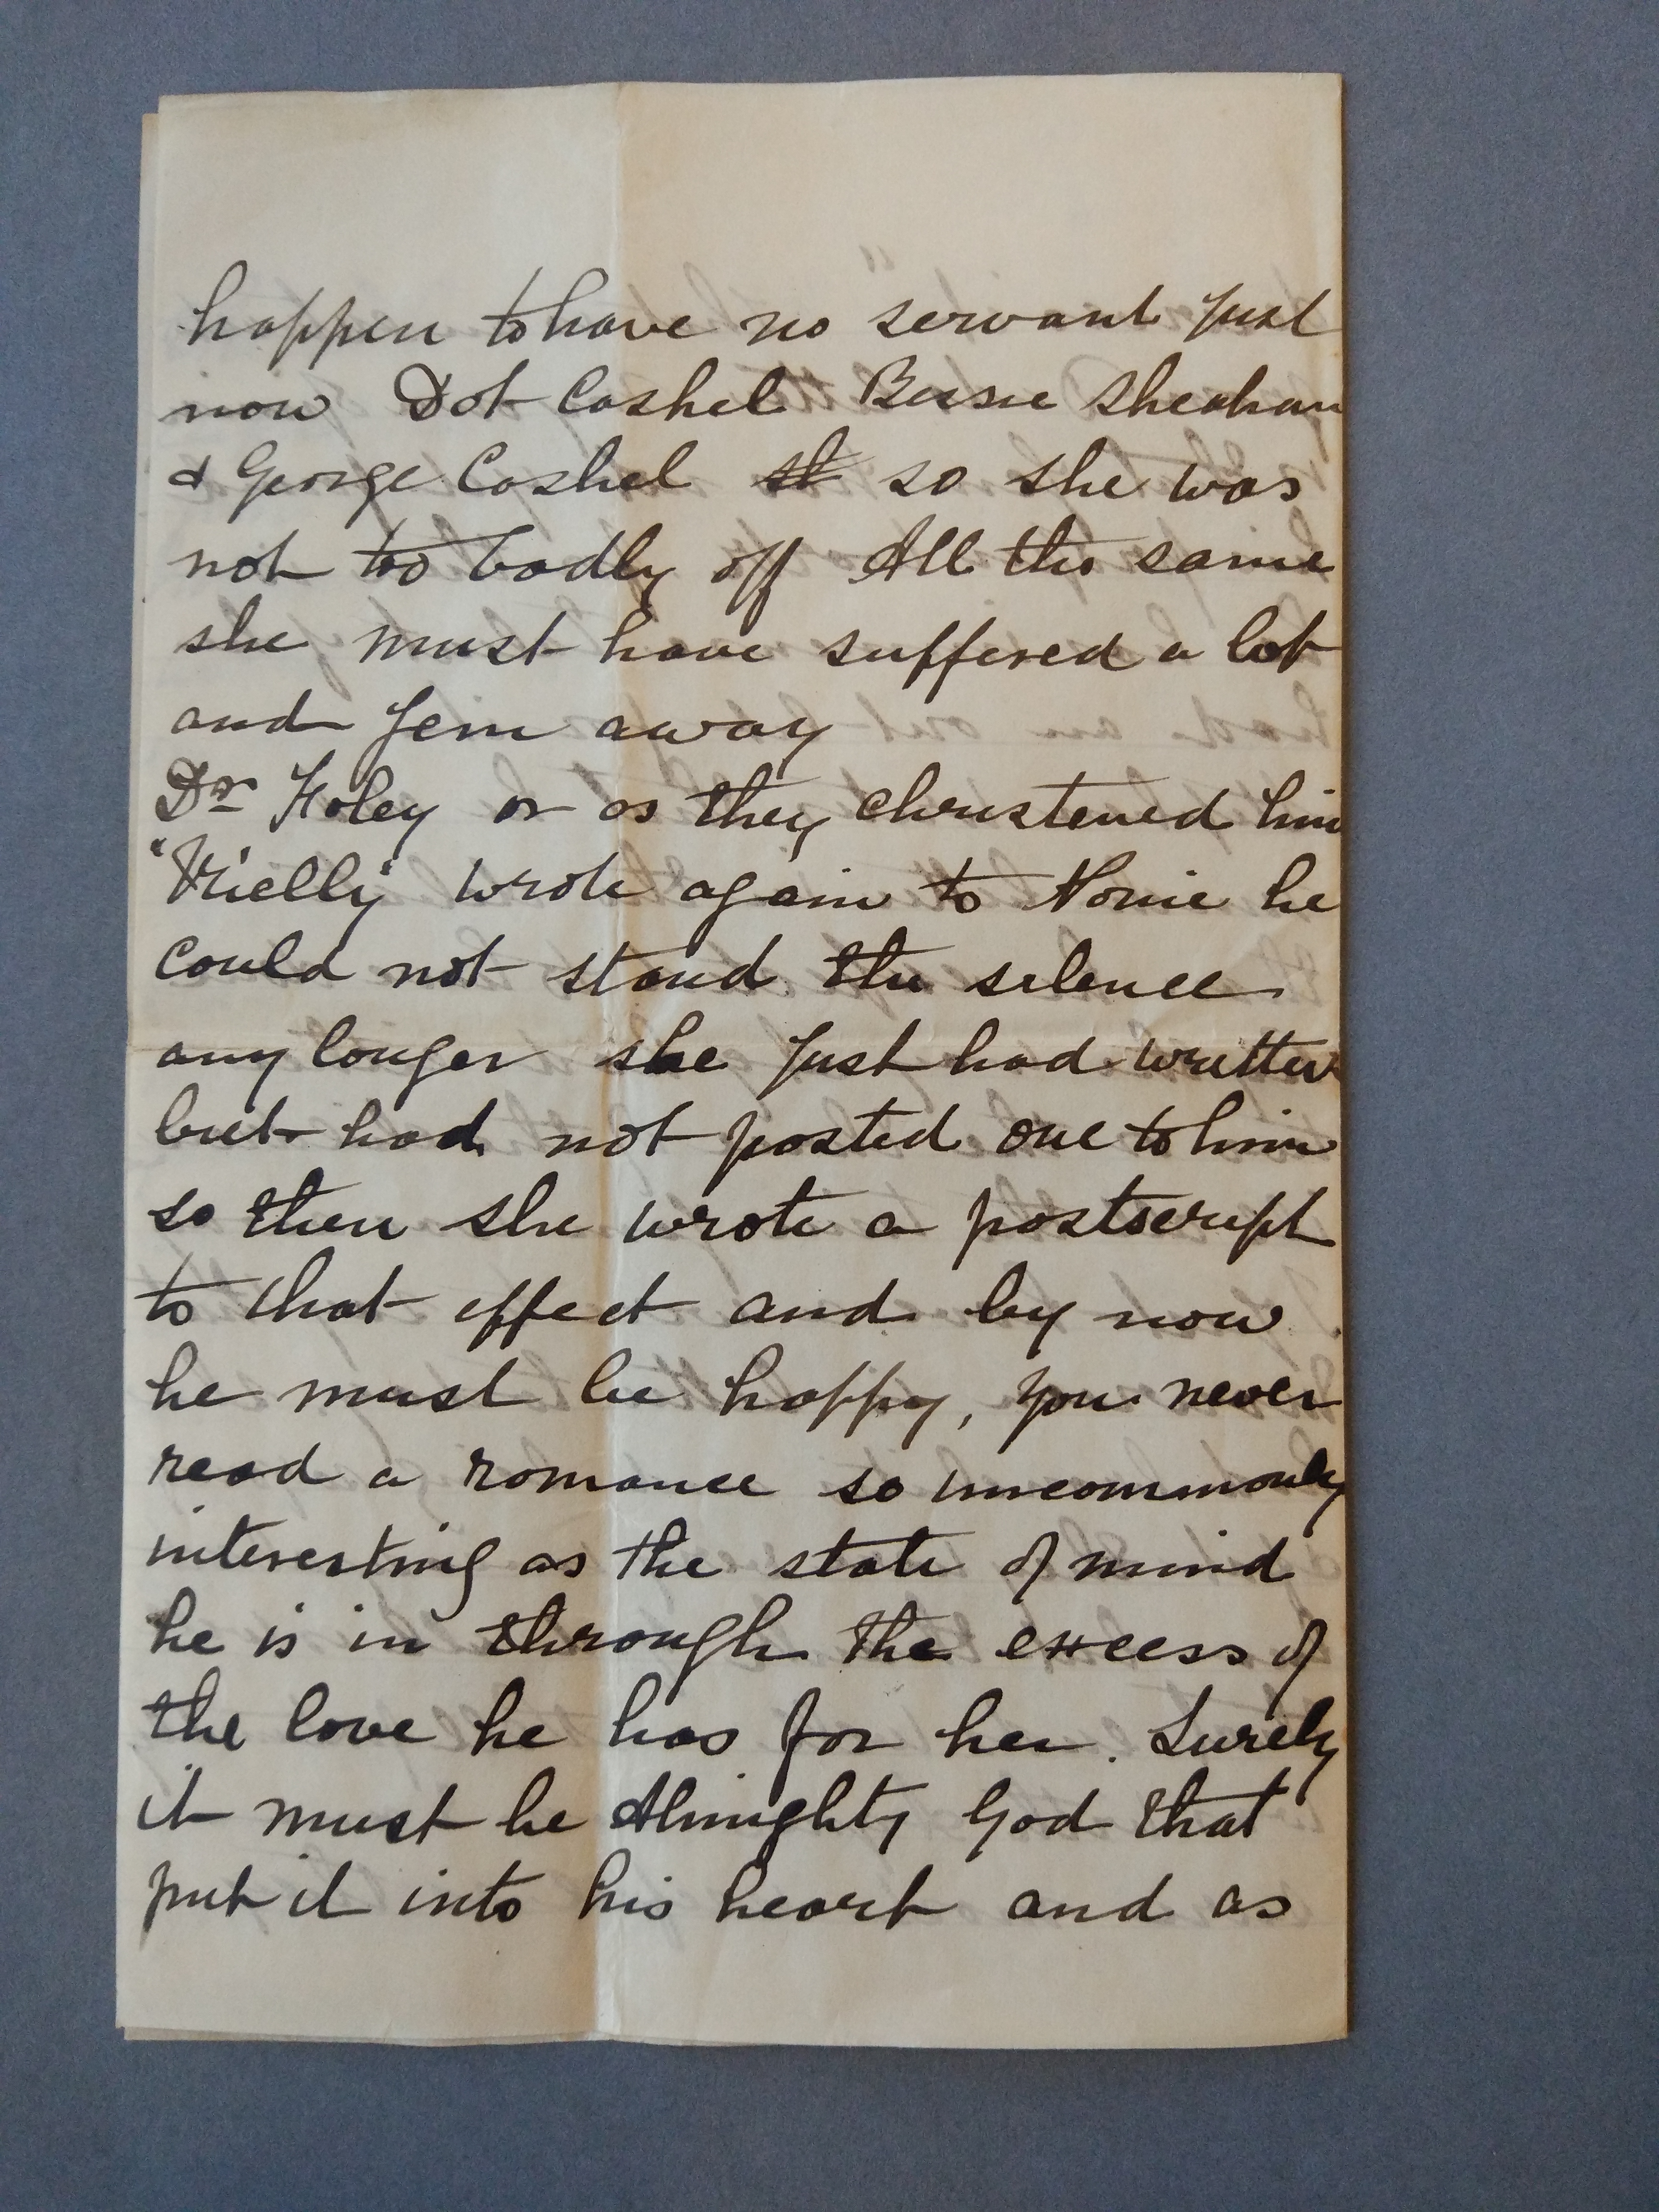 happen to have no servant just
now Dot Cashel Bessie Sheahan
& George Cashel st so she was
not too badly off All the same
she must have suffered a lot
and Jem away
Dr Foley or as they christened him
wrote again to Nonie he
could not stand the silence
any longer she just had written
but had not posted one to him
so then she wrote a postscript
to that effect and by now
he must be happy, you never
read a romance so uncommonly
interesting as the state of mind
he is in through the excess of
the love he has for her. Surely
it must be Almighty God that
put it into his heart and as